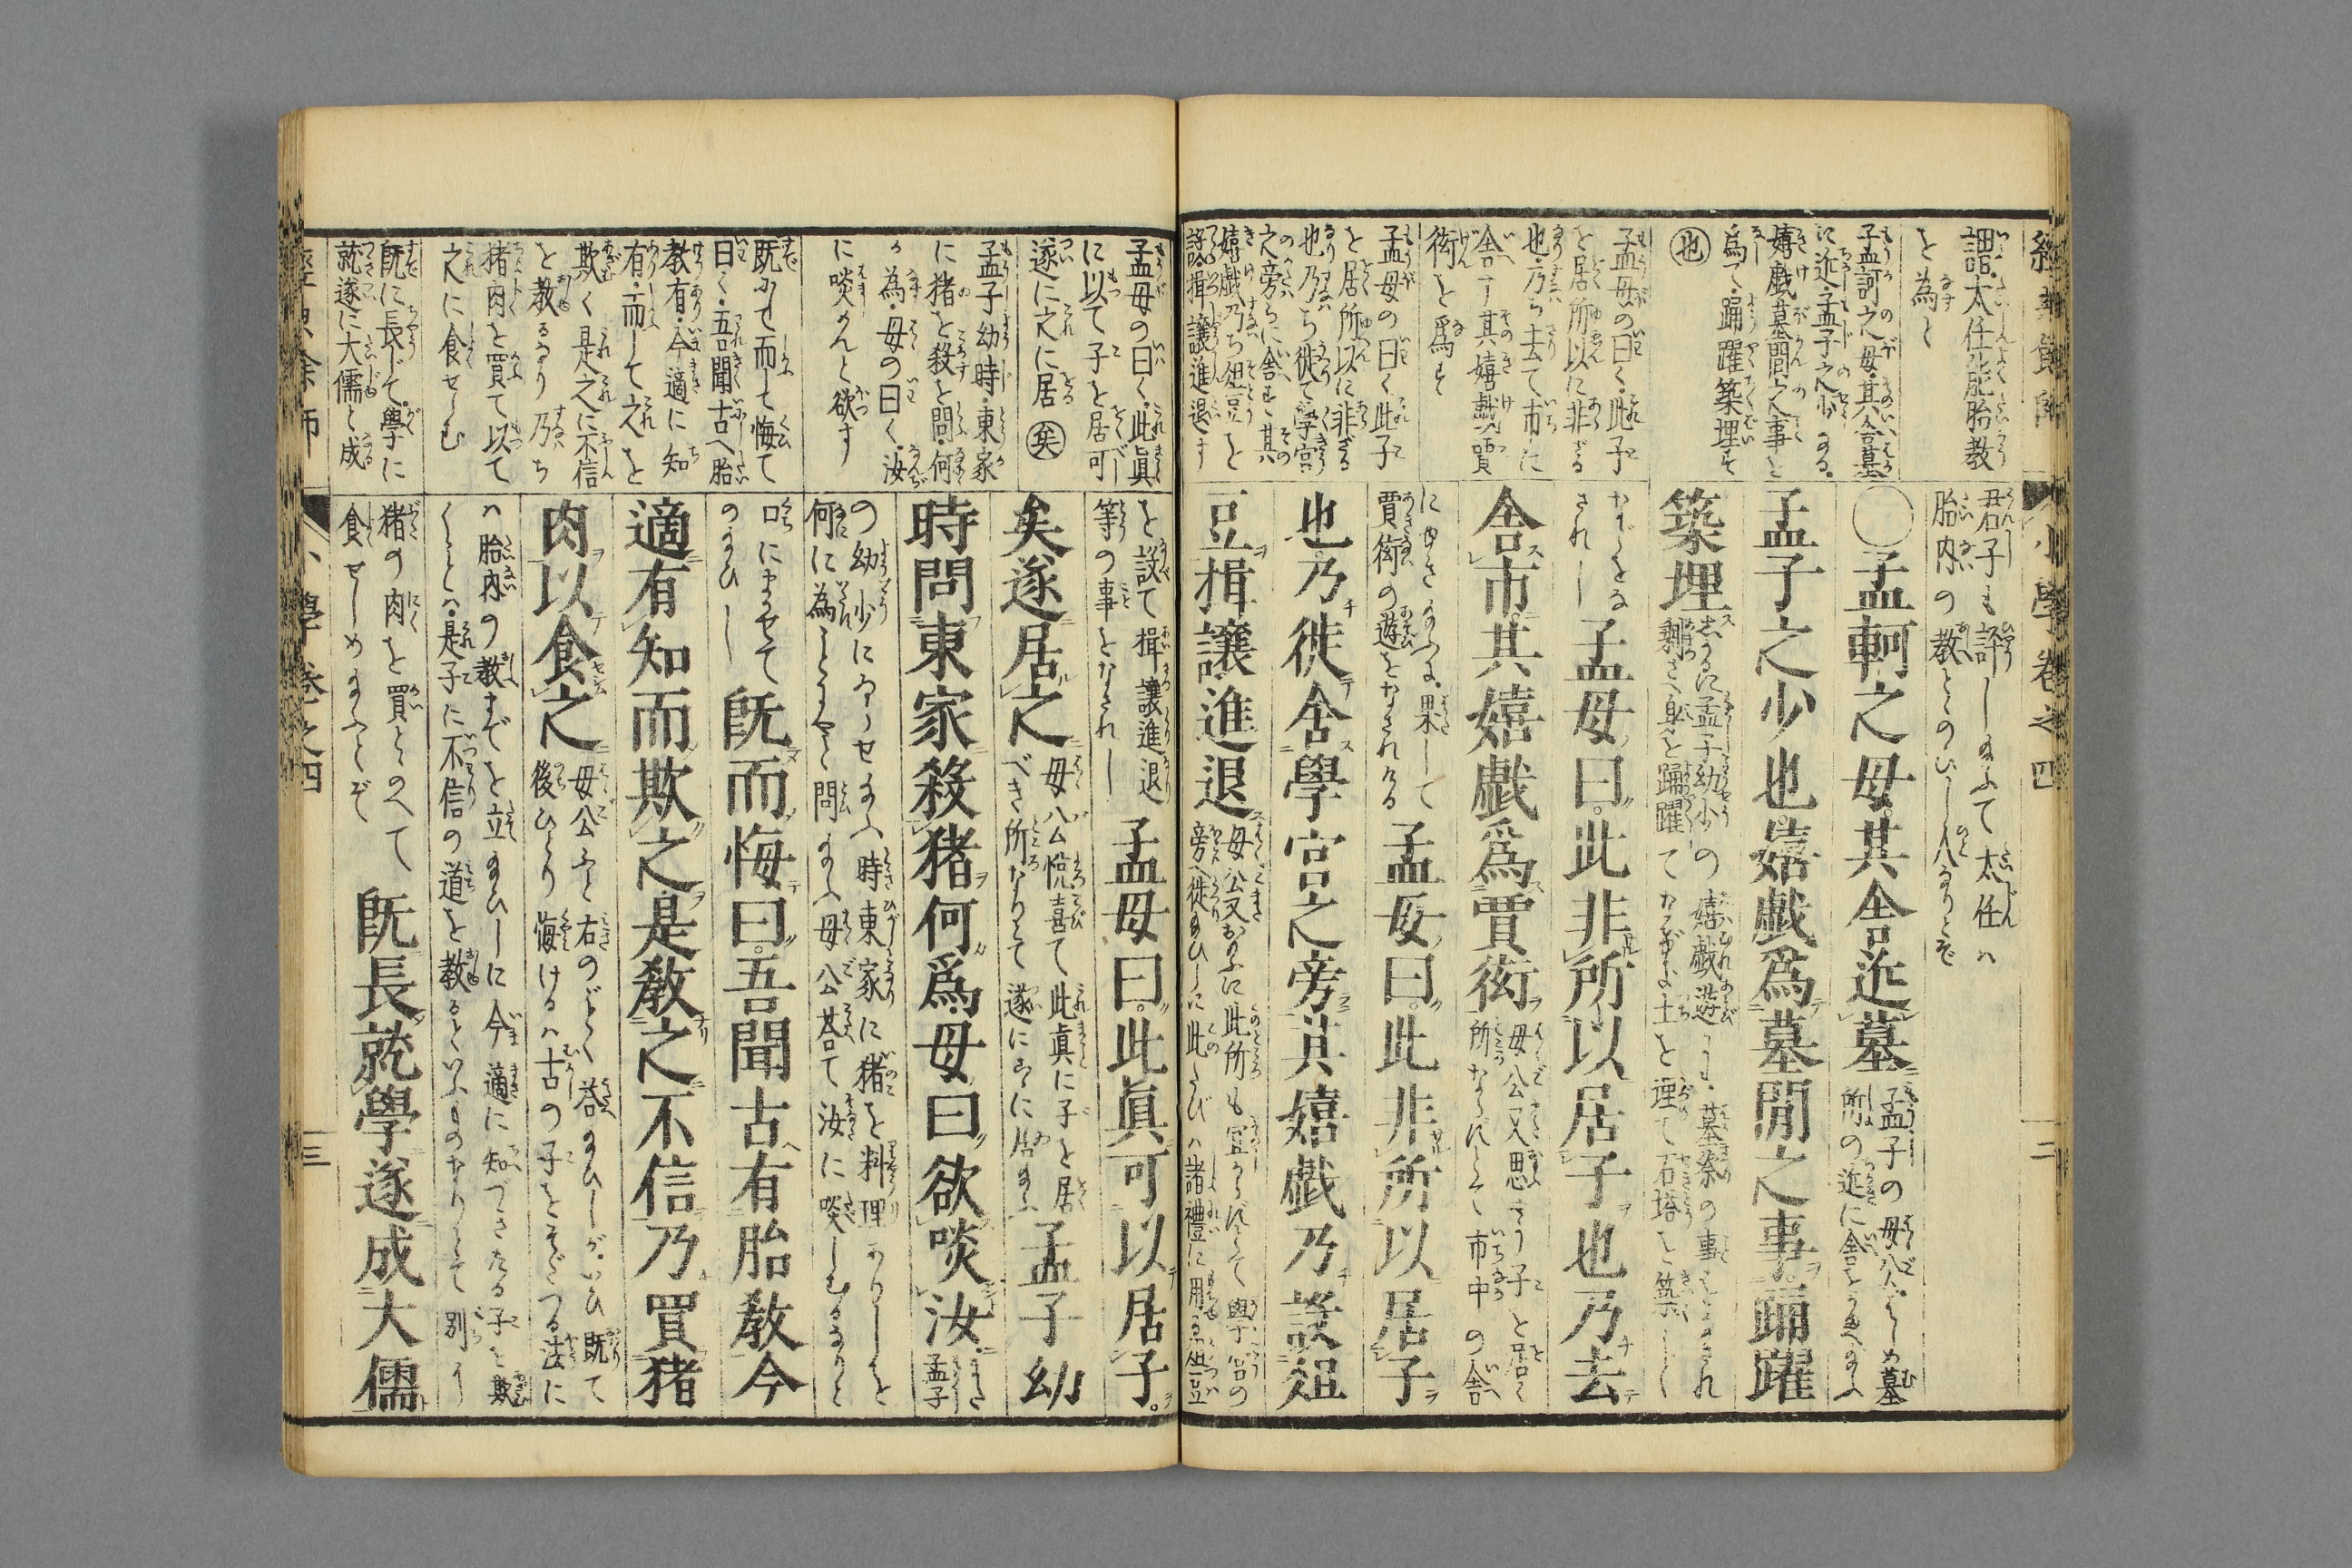 經典餘師
小學卷之四
二
謂太任能胎教
を為と
孟軻之母其舎墓
に近孟子之少なる
嬉戯墓間之事を
為て踊躍築埋す
也
孟母の曰く此子
を居所以に非ざる
也乃ち去て市に
舎す其嬉戯賈
衒を為す
孟母の曰く此子
を居所以に非ざる
也乃ち徙て學宮
之旁らに舎す其
嬉戯乃ち俎豆を
設揖讓進退す
君子も評し給ふて太任ハ
胎内の教とゝのひし人なりとぞ
○孟軻之母其舍近墓
孟子の母公はじめ墓
所の近に舎をかまへ給ふ
孟子之少也嬉戲爲墓間之事踊躍
築埋
しかるに孟子幼少の嬉戯遊に墓祭の事をなされ
踊躍て
土を埋て石塔を築
などをな
されし
孟母曰此非所以居子也乃去
舍市其嬉戲爲賈衒
母公又思ふ子を居く
所ならずとて市中の舎
にゆき給ふに果して
賈衒の遊をなされける
孟母曰此非所以居子
也乃徙舍學宮之旁其嬉戲乃設俎
豆揖讓進退
母公又おもふに此所も宜からずとて學宮の
旁へ徙給ひしに此たびハ諸禮に用る俎豆
孟母の曰く此眞
に以て子を居可
遂に之に居
矣
孟子幼時東家
に猪を殺を問何
か為母の曰く汝
に啖かんと欲す
既にして而して悔て
曰く吾聞古へ胎
教有今適に知
有而して之を
欺く是之に不信
を教るなり乃ち
猪肉を買て以て
之に食せしむ
既に長じて學に
就遂に大儒と成
を設て揖讓進退
等の事をなされし
孟母曰此眞可以居子
矣遂居之
母公悦喜て此眞に子を居
べき所なりとて遂にこゝに居給ふ
孟子幼
時問東家殺猪何爲母曰欲啖汝
孟子
の幼少にわたらせ給ふ時東家に猪を料理ありしを
何に為しとするやと問給ふ母公荅て汝に啖しむるなりと
口にまかせて
の給ひし
既而悔曰吾聞古有胎教今
適有知而欺之是教之不信乃買猪
肉以食之
母公ふと右のごとく荅給ひしがいひ既て
後ひとり悔けるハ古の子をそだつる法に
ハ胎内の教までを立給ひしに今適に知づきたる子を欺
くことハ是子に不信の道を教るといふものなりとて別に
猪の肉を買とゝのへて
食せしめ給ふとぞ
既長就學遂成大儒
經典餘師
小學卷之四
三